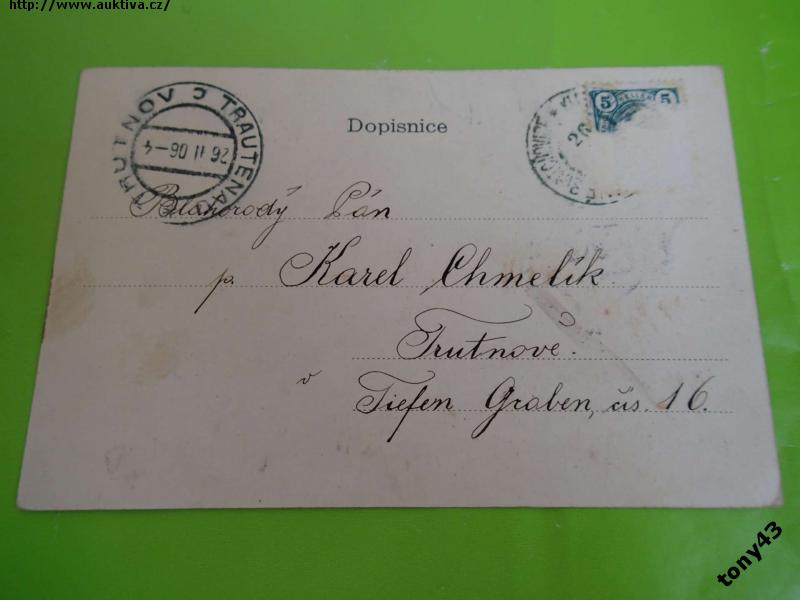 http://www.auktiva.cz/
TRUTNOV C TRAUTENAU
26 II 06-4
5 HELLER 5
26
Dopisnice
Blahorodý Pán
p. Karel Chmelík
Trutnově.
v Tiefen Graben, čís. 16.
tony43